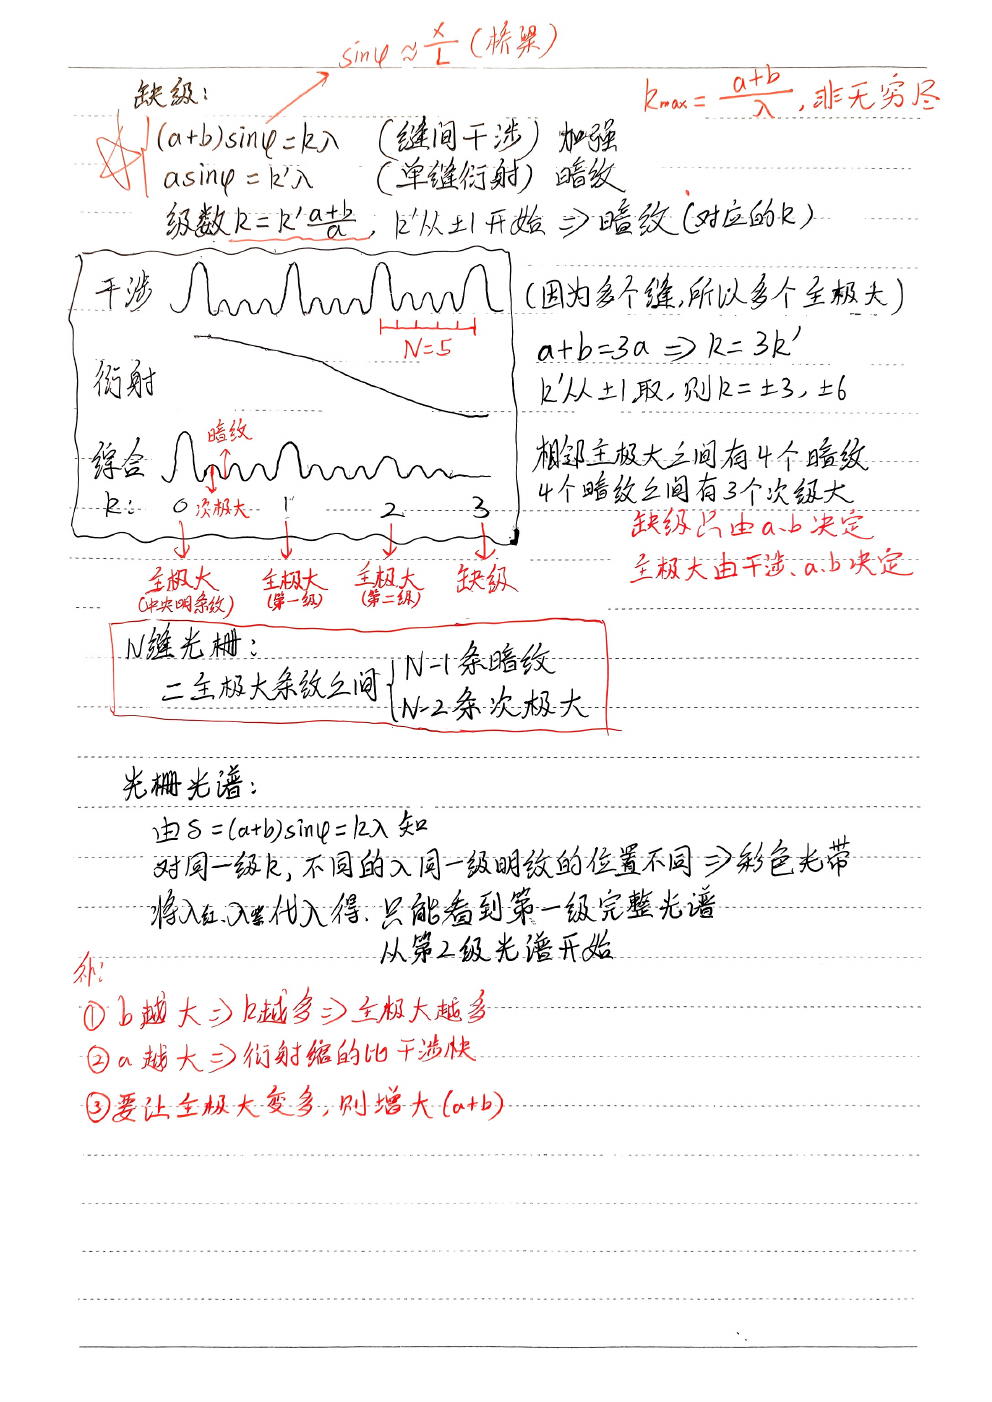 sinφ ≈ x/L (桥梁)
kmax = (a+b)/λ, 非无穷尽
缺级:
(a+b)sinφ=kλ (缝间干涉) 加强
asinφ=k'λ (单缝衍射) 暗纹
级数k=k'(a+b)/a, k'从±1开始 ⇒ 暗纹(对应的k)
干涉
N=5
衍射
综合
暗纹
次极大
k: 0 1 2 3
主极大 (中央明条纹)
主极大 (第一级)
主极大 (第二级)
缺级
(因为多个缝,所以多个主极大)
a+b=3a ⇒ k=3k'
k'从±1取, 则k=±3, ±6
相邻主极大之间有4个暗纹
4个暗纹之间有3个次级大
缺级只由a、b决定
主极大由干涉、a、b决定
N缝光栅:
二主极大条纹之间
N-1条暗纹
N-2条次极大
光栅光谱:
由δ=(a+b)sinφ=kλ知
对同一级k, 不同的λ同一级明纹的位置不同⇒彩色光带
将λ红、λ紫代入得. 只能看到第一级完整光谱
从第2级光谱开始
补:
①b越大⇒k越多⇒主极大越多
②a越大⇒衍射缩的比干涉快
③要让主极大变多, 则增大(a+b)